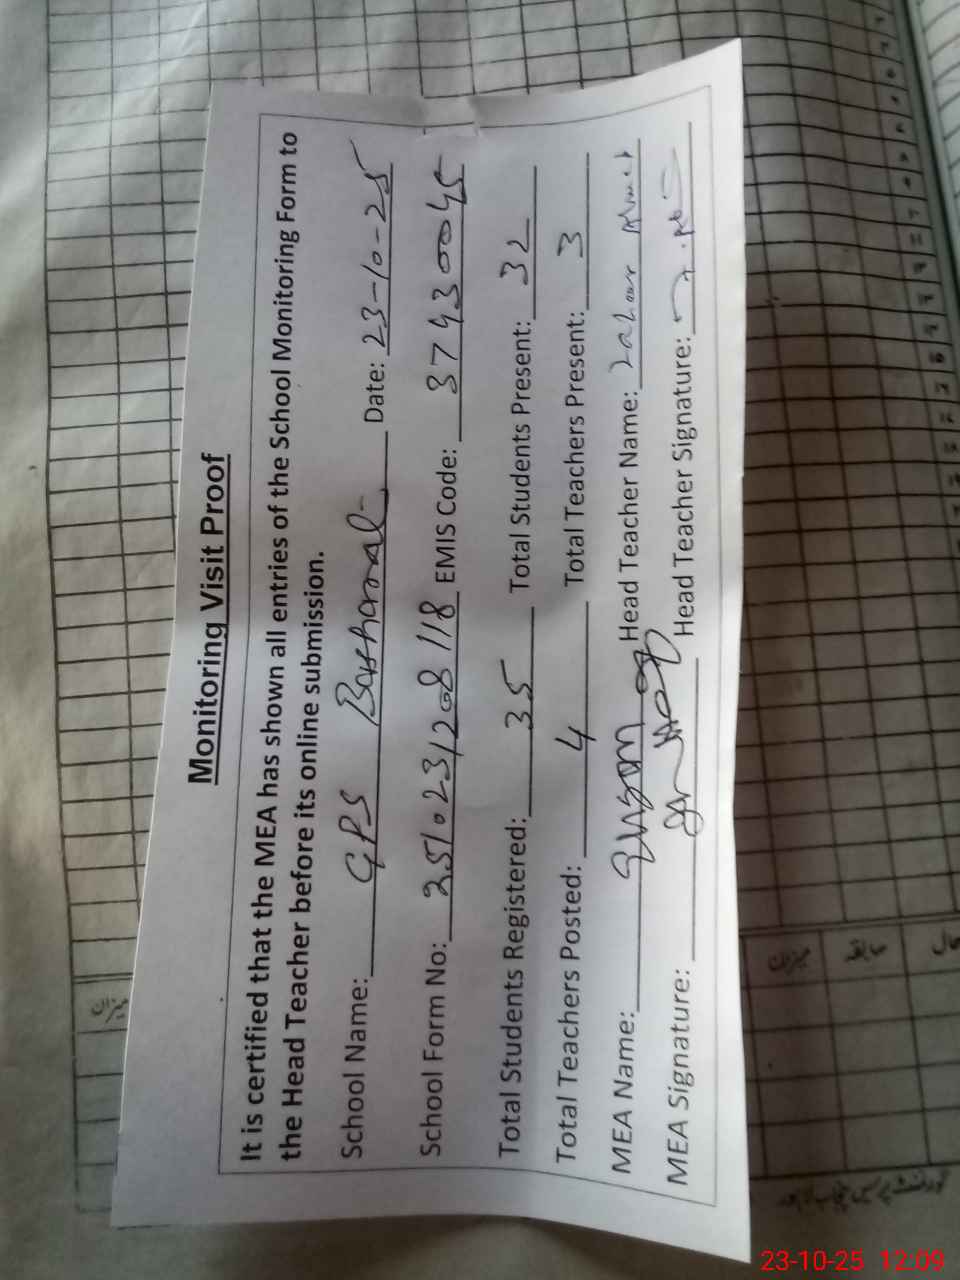 Monitoring Visit Proof
It is certified that the MEA has shown all entries of the School Monitoring Form to
the Head Teacher before its online submission.
School Name: GPS Date: 23-10-25
School Form No: 3510231208118 EMIS Code: 37430045
Total Students Registered: 35 Total Students Present: 32
Total Teachers Posted: 4 Total Teachers Present: 3
MEA Name: Head Teacher Name: Zahoor Ahmed
MEA Signature: Head Teacher Signature:
میزان
میزان سابقہ حال
گورنمنٹ پریس پنجاب لاہور
23-10-25 12:09